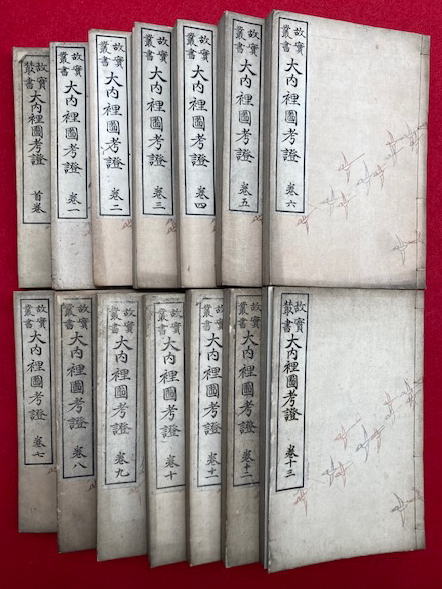 故實叢書 大内裡圖考證 首卷
故實叢書 大内裡圖考證 卷一
故實叢書 大内裡圖考證 卷二
故實叢書 大内裡圖考證 卷三
故實叢書 大内裡圖考證 卷四
故實叢書 大内裡圖考證 卷五
故實叢書 大内裡圖考證 卷六
故實叢書 大内裡圖考證 卷七
故實叢書 大内裡圖考證 卷八
故實叢書 大内裡圖考證 卷九
故實叢書 大内裡圖考證 卷十
故實叢書 大内裡圖考證 卷十一
故實叢書 大内裡圖考證 卷十二
故實叢書 大内裡圖考證 卷十三